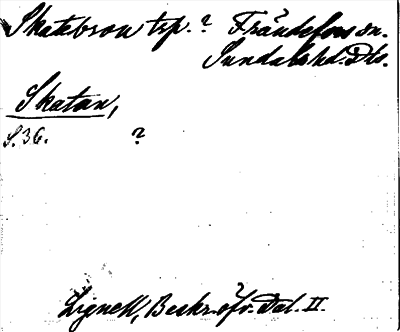 Skatebron tsp. ? Frändefors sn.
Sundals hd. Dls.
Skatan,
S. 36. ?
Lignell, Beskr. öfv. Dal. II.